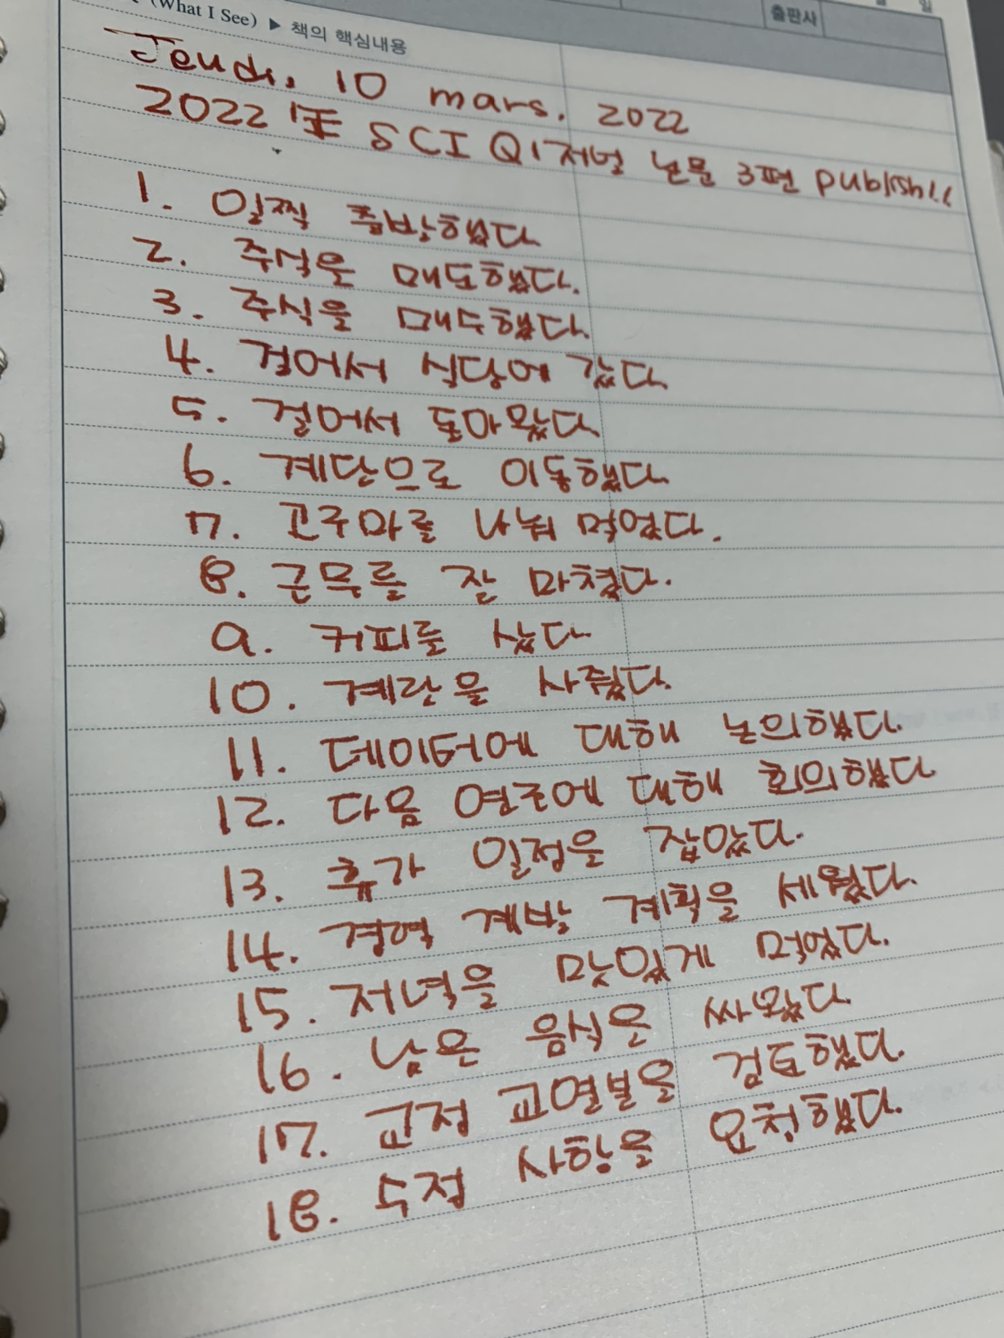 (What I See) ▶ 책의 핵심내용
출판사
일
Jeudi, 10 mars. 2022
2022 SCI Q1 저널 논문 3편 publish!!
1. 일찍 출발했다
2. 주식을 매도했다.
3. 주식을 매수했다.
4. 걸어서 식당에 갔다
5. 걸어서 돌아왔다
6. 계단으로 이동했다
7. 고구마를 나눠 먹었다.
8. 근무를 잘 마쳤다.
9. 커피를 샀다
10. 계란을 사줬다.
11. 데이터에 대해 논의했다.
12. 다음 연구에 대해 회의했다
13. 휴가 일정을 잡았다.
14. 경력 계발 계획을 세웠다.
15. 저녁을 맛있게 먹었다.
16. 남은 음식은 싸왔다
17. 교정 교열본을 검토했다.
18. 수정 사항을 요청했다.